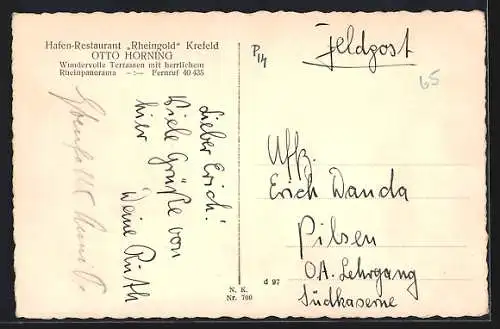 Hafen-Restaurant „Rheingold“ Krefeld
OTTO HORNING
Wundervolle Terrassen mit herrlichem
Rheinpanorama -:- Fernruf 40 435
Lieber Erich!
Viele Grüße von
hier
Deine Ruth
N. K.
Nr. 760
d 97
P14
Feldpost
65
Uffz.
Erich Wanda
Pilsen
OA. Lehrgang
Südkaserne